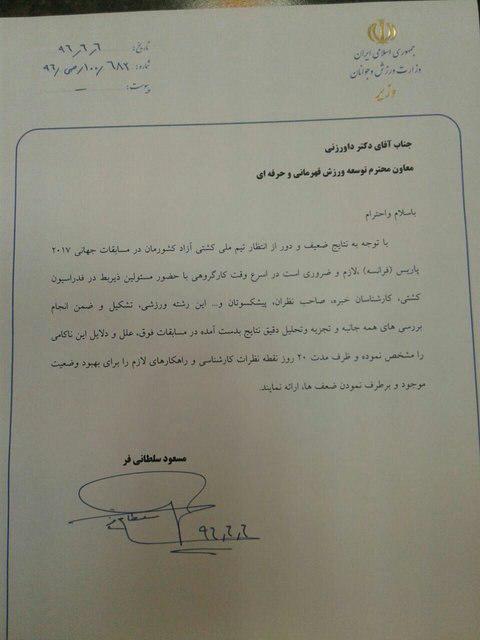 جمهوری اسلامی ایران
وزارت ورزش و جوانان
وزیر
تاریخ: ۹۶٫۶٫۶
شماره: ۶۸۲/۱۰۰/ص/۹۶
پیوست: ــ
جناب آقای دکتر داورزنی
معاون محترم توسعه ورزش قهرمانی و حرفه ای
باسلام واحترام
با توجه به نتایج ضعیف و دور از انتظار تیم ملی کشتی آزاد کشورمان در مسابقات جهانی ۲۰۱۷
پاریس (فرانسه) ،لازم و ضروری است در اسرع وقت کارگروهی با حضور مسئولین ذیربط در فدراسیون
کشتی، کارشناسان خبره، صاحب نظران، پیشکسوتان و... این رشته ورزشی، تشکیل و ضمن انجام
بررسی های همه جانبه و تجزیه وتحلیل دقیق نتایج بدست آمده در مسابقات فوق، علل و دلایل این ناکامی
را مشخص نموده و ظرف مدت ۲۰ روز نقطه نظرات کارشناسی و راهکارهای لازم را برای بهبود وضعیت
موجود و برطرف نمودن ضعف ها، ارائه نمایند.
مسعود سلطانی فر
۹۶٫۶٫۶